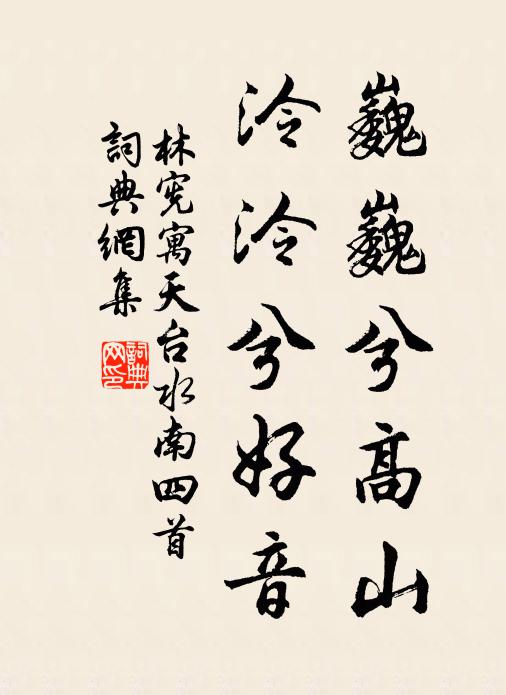 巍巍兮高山
泠泠兮好音
林宪寓天台水南四首
詞典網集
詞典网印